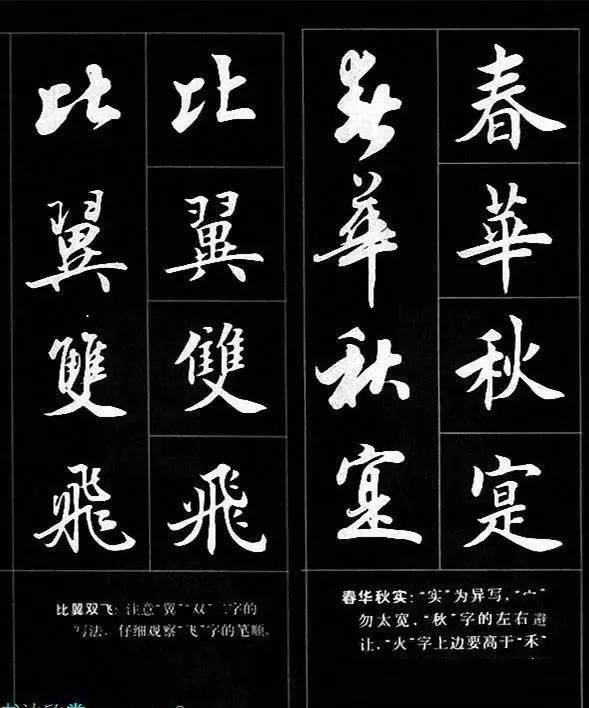 春華秋寔
春華秋寔
春华秋实：“实”为异写，“宀”
勿太宽，“秋”字的左右避
让，“火”字上边要高于“禾”
比翼雙飛
比翼雙飛
比翼双飞：注意“翼”“双”二字的
写法，仔细观察“飞”字的笔顺。